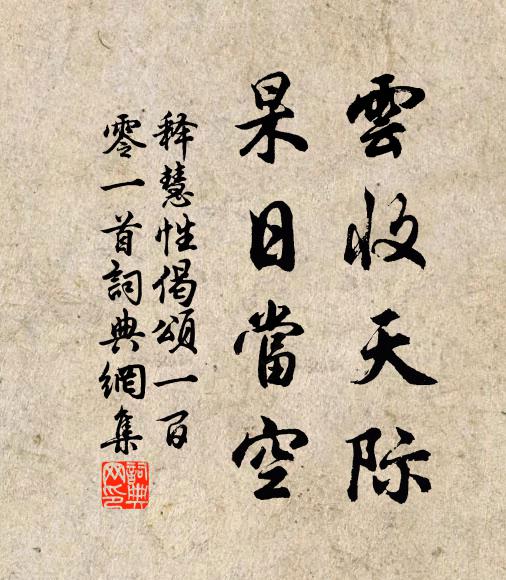 雲收天际
杲日當空
释慧性偈頌一百
零一首詞典網集
詞典網印